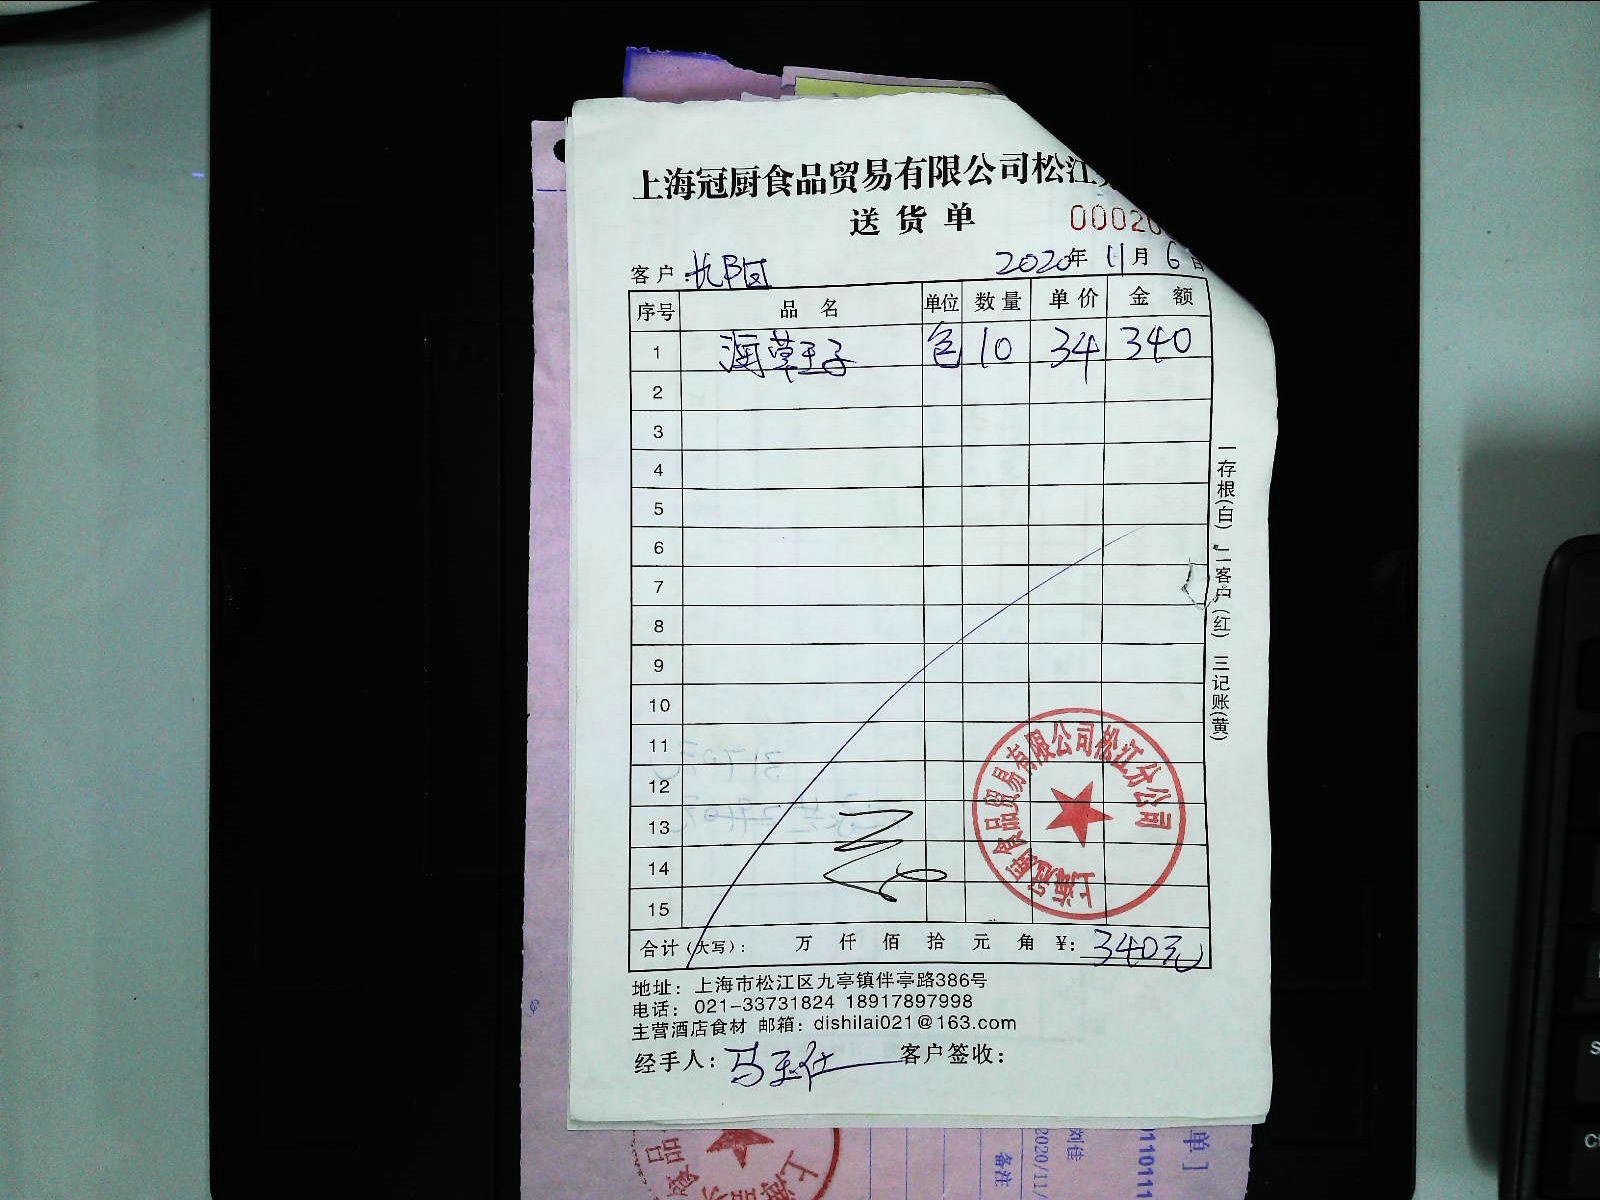 上海冠厨食品贸易有限公司松江
送货单
00020
客户:
2020年 11月 6日
序号 品名 单位 数量 单价 金额
1 包 10 34 340
2
3
4
5
6
7
8
9
10
11
12
13
14
15
合计(大写): 万 仟 佰 拾 元 角 ¥: 340元
地址: 上海市松江区九亭镇伴亭路386号
电话: 021-33731824 18917897998
主营酒店食材 邮箱: dishilai021@163.com
经手人: 客户签收:
一存根(白) 二客户(红) 三记账(黄)
上海冠厨食品贸易有限公司松江分公司
单]
2020/11/
备注